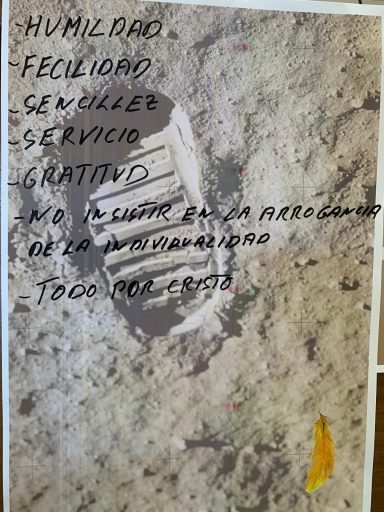 -HUMILDAD
-FECILIDAD
-SENCILLEZ
-SERVICIO
-GRATITUD
-NO INSISTIR EN LA ARROGANCIA
DE LA INDIVIDUALIDAD
-TODO POR CRISTO